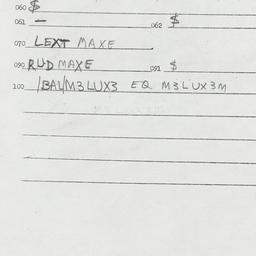 060 $
061 — 062 $
070 LEXT MAXE
090 RUD MAXE 091 $
100 /BAL/M3LUX3 EQ M3LUX3M